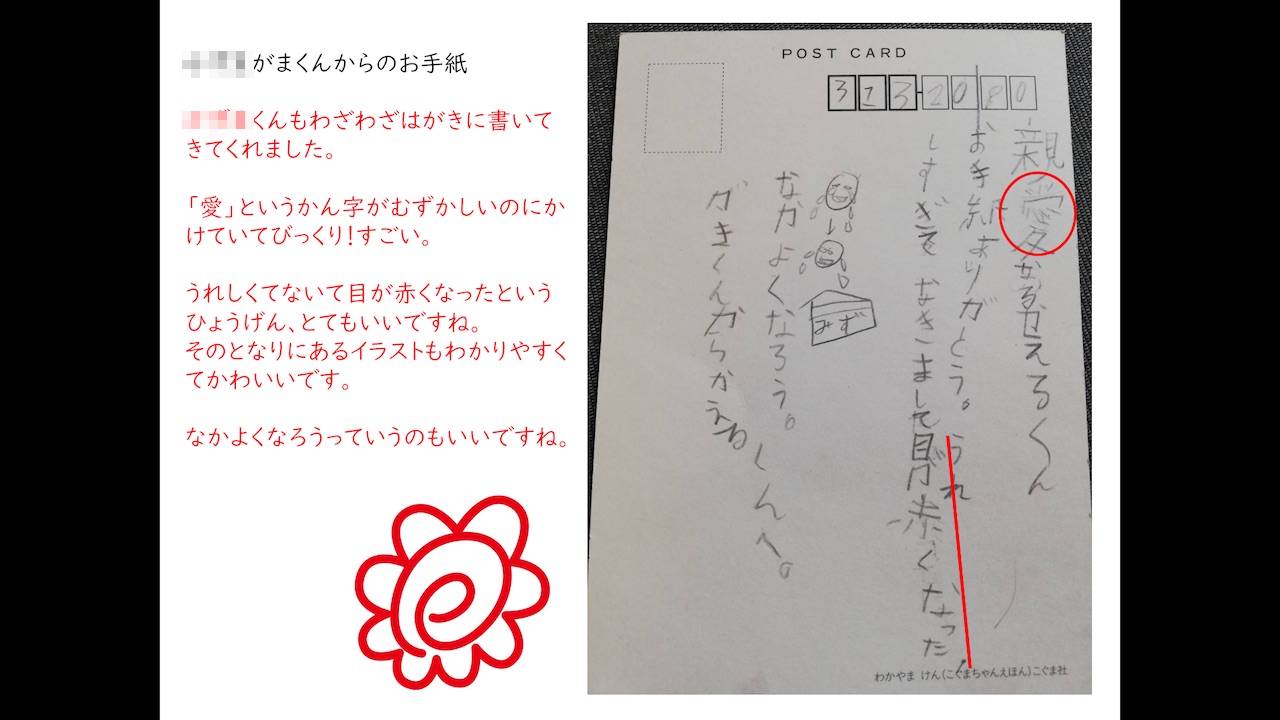 がまくんからのお手紙
くんもわざわざはがきに書いて
きてくれました。
「愛」というかん字がむずかしいのにか
けていてびっくり！すごい。
うれしくてないて目が赤くなったという
ひょうげん、とてもいいですね。
そのとなりにあるイラストもわかりやすく
てかわいいです。
なかよくなろうっていうのもいいですね。
POST CARD
313-2080
親愛なる
くん
お手紙ありガとう。うれ
しすぎてなきまして目が赤くなった!
なかよくなろう。くんへ。
がきくんからかえる
みず
わかやま けん(こぐまちゃんえほん)こぐま社